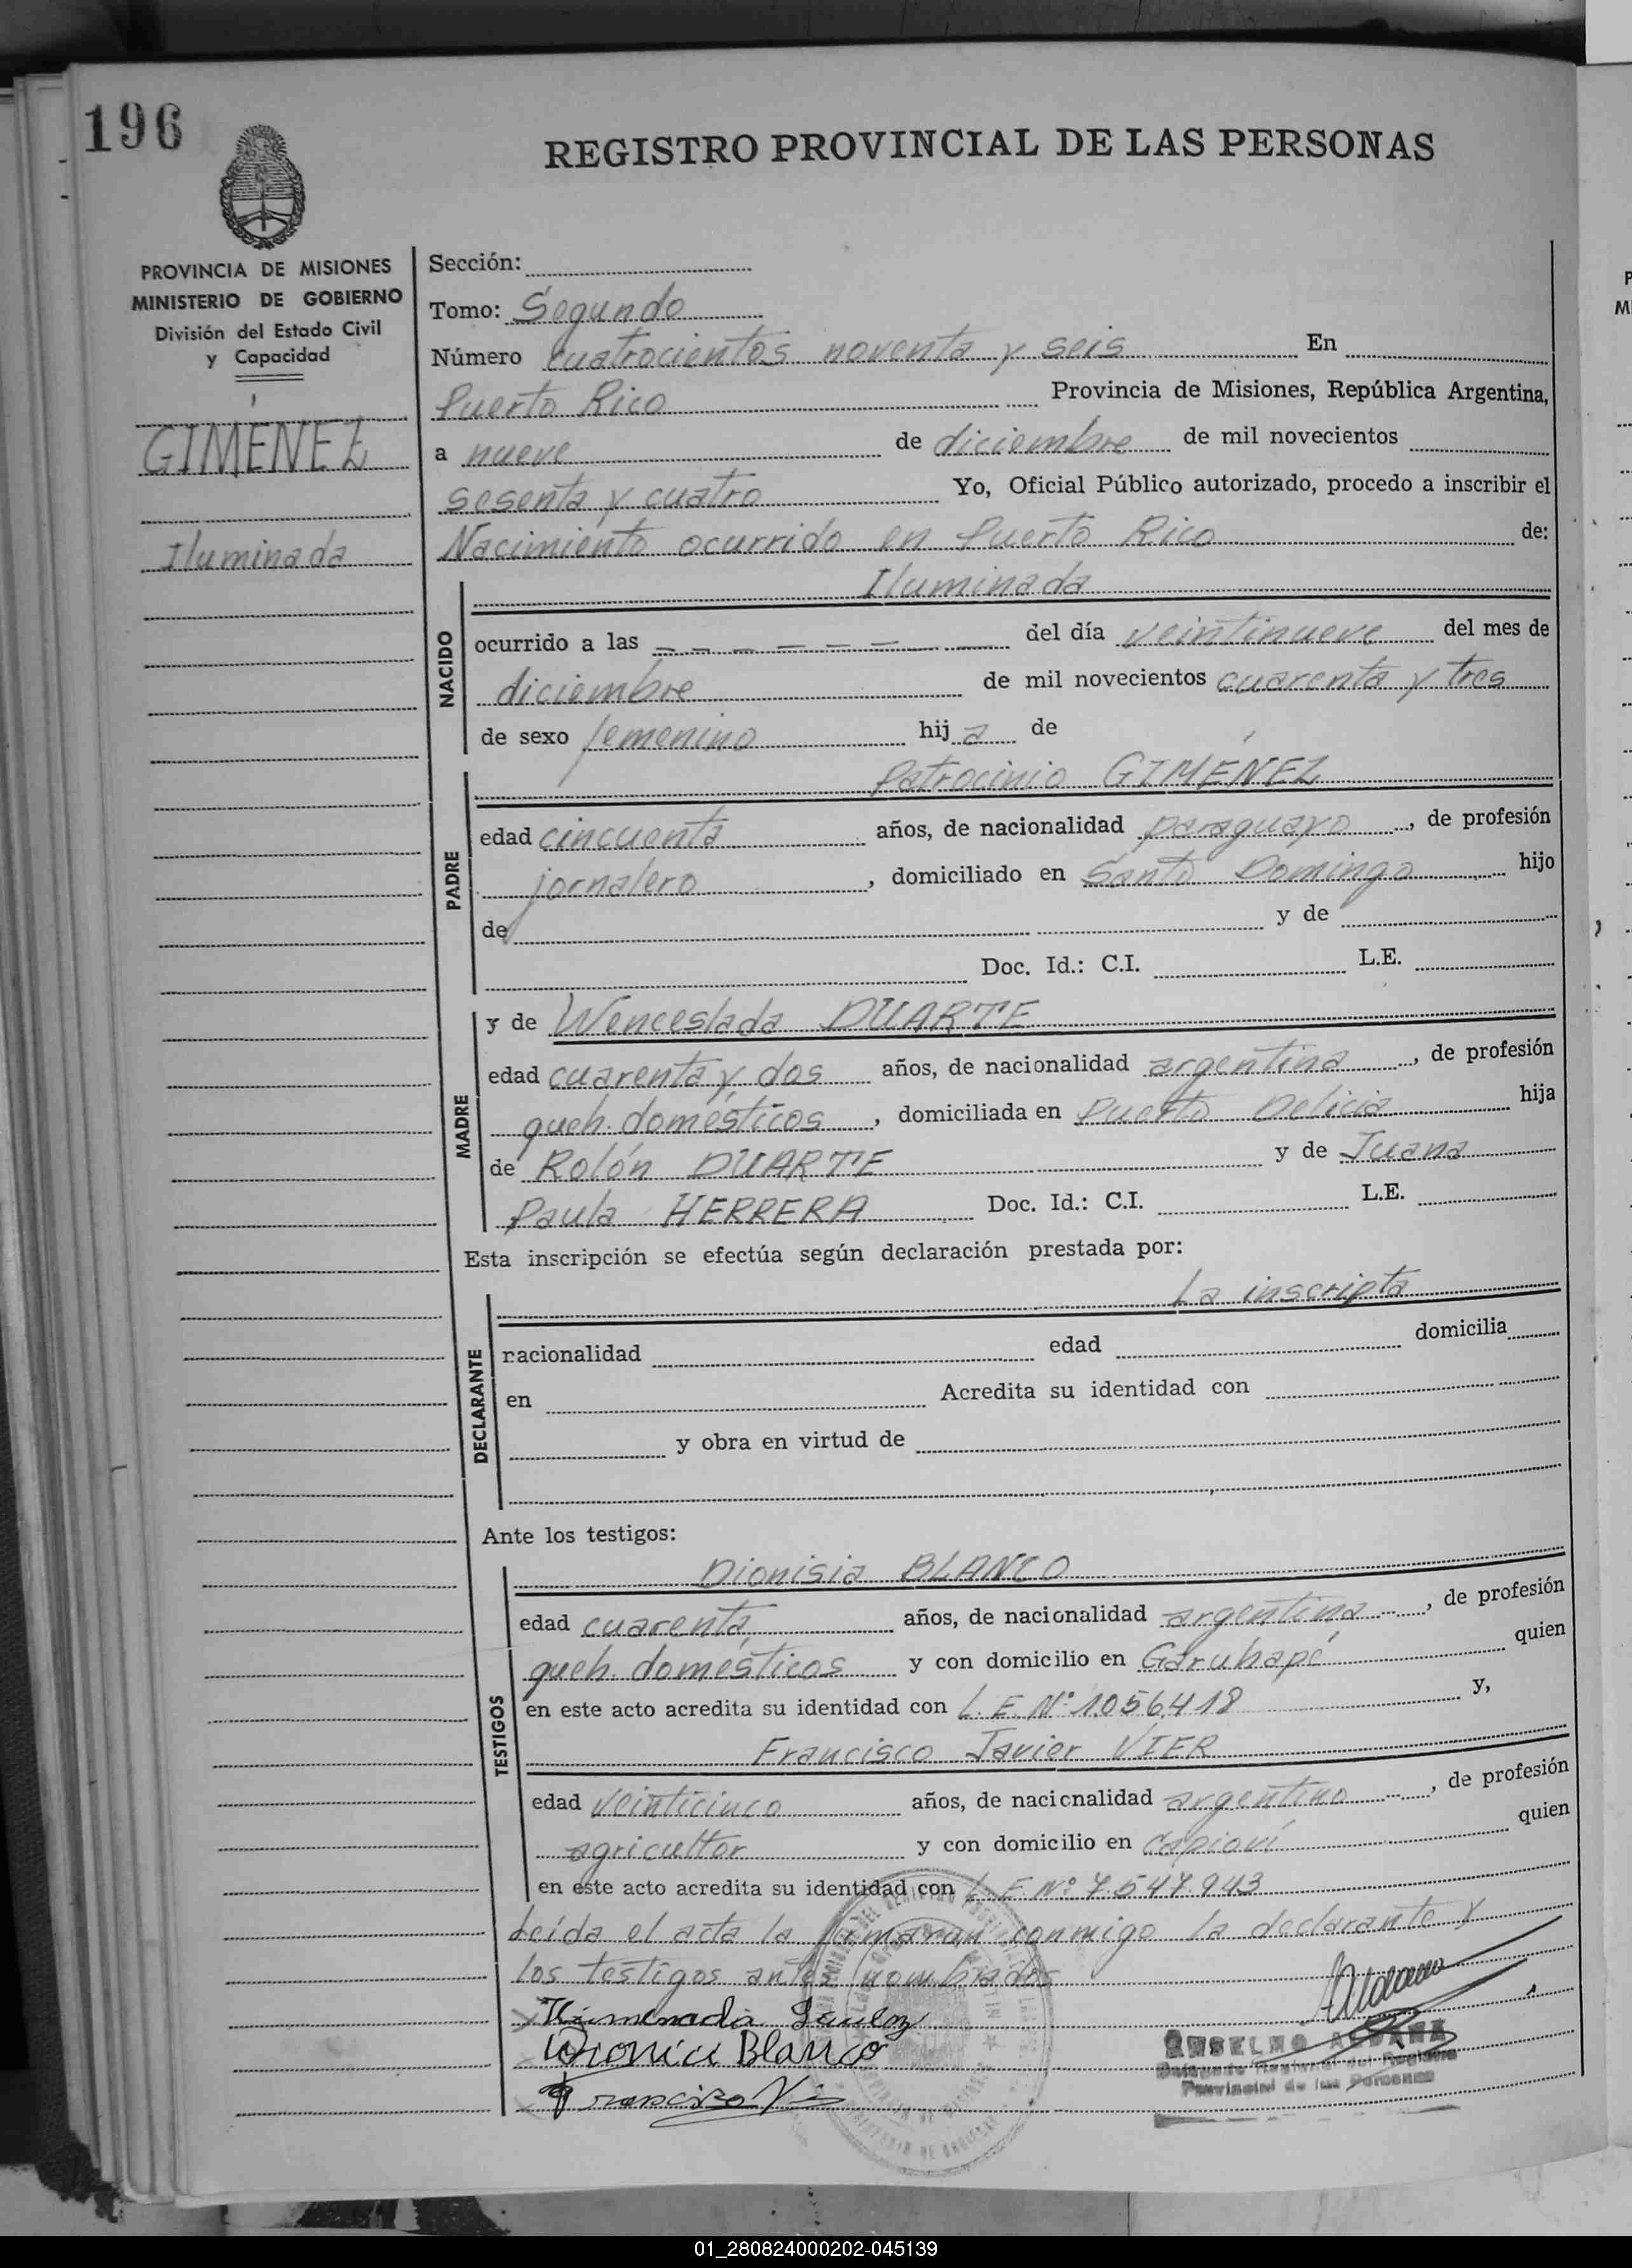 196
REGISTRO PROVINCIAL DE LAS PERSONAS
PROVINCIA DE MISIONES
MINISTERIO DE GOBIERNO
División del Estado Civil
y Capacidad
GIMÉNEZ
Iluminada
Sección:
Tomo: Segundo
Número cuatrocientos noventa y seis En
Puerto Rico Provincia de Misiones, República Argentina,
a nueve de diciembre de mil novecientos
sesenta y cuatro Yo, Oficial Público autorizado, procedo a inscribir el
Nacimiento ocurrido en Puerto Rico de:
NACIDO
Iluminada
ocurrido a las — — — — — — — del día veintinueve del mes de
diciembre de mil novecientos cuarenta y tres
de sexo femenino hija de
PADRE
Patrocinio GIMÉNEZ
edad cincuenta años, de nacionalidad paraguayo, de profesión
jornalero, domiciliado en Santo Domingo hijo
de y de
Doc. Id.: C.I. L.E.
MADRE
y de Wenceslada DUARTE
edad cuarenta y dos años, de nacionalidad argentina, de profesión
queh. domésticos, domiciliada en Puerto Delicia hija
de Rolón DUARTE y de Juana
Paula HERRERA Doc. Id.: C.I. L.E.
Esta inscripción se efectúa según declaración prestada por:
DECLARANTE
La inscripta
nacionalidad edad domicilia
en Acredita su identidad con
y obra en virtud de
Ante los testigos:
TESTIGOS
Dionisia BLANCO
edad cuarenta años, de nacionalidad argentina, de profesión
queh. domésticos y con domicilio en Garuhapé quien
en este acto acredita su identidad con L.E. Nº 1.056.418 y,
Francisco Javier VIER
edad veinticinco años, de nacionalidad argentino, de profesión
agricultor y con domicilio en Capioví quien
en este acto acredita su identidad con L.E. Nº 7.547.943
Leída el acta la firmaran conmigo la declarante y
los testigos antes nombrados
Dionici Blanco
ANSELMO ALDANA
Delegado Regional del Registro
Provincial de las Personas
01_280824000202-045139